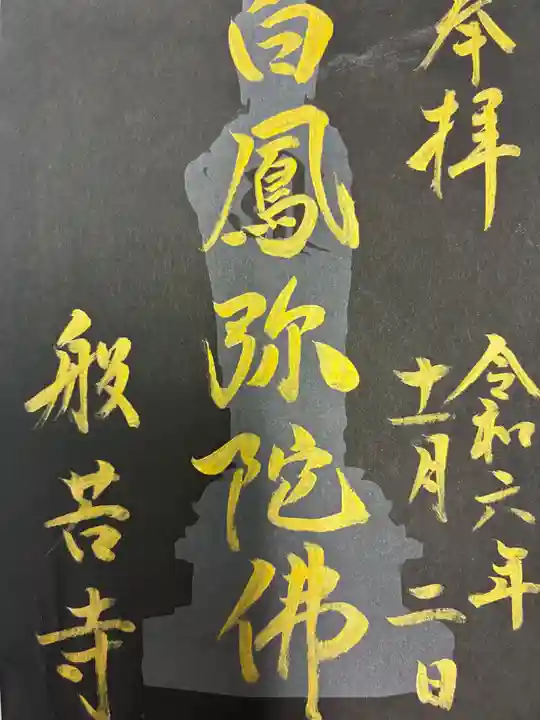 奉拝
令和六年
十一月二日
白鳳弥陀佛
般若寺